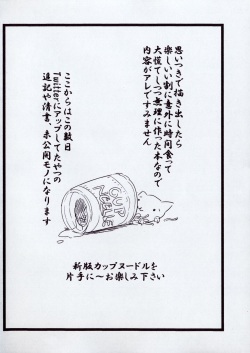 思いつきで描き出したら
楽しい割に意外に時間食って
大慌てしつつ無理に作った本なので
内容がアレですみません
ここからはこの数日
Twitterにアップしてたやつの
追記や清書、未公開モノになります
CUP
NOODLE
新版カップヌードルを
片手に〜お楽しみ下さい